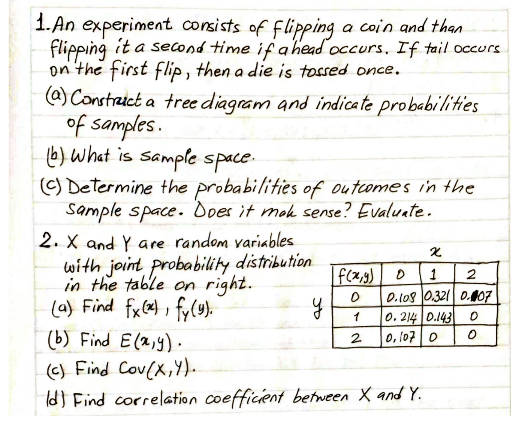 1. An experiment consists of flipping a coin and than
flipping it a second time if a head occurs. If tail occurs
on the first flip, then a die is tossed once.
(a) Construct a tree diagram and indicate probabilities
of samples.
(b) What is sample space.
(c) Determine the probabilities of outcomes in the
sample space. Does it mak sense? Evaluate.
2. X and Y are random variables
with joint probability distribution
in the table on right.
(a) Find fx(x), fy(y).
(b) Find E(x,y).
(c) Find Cov(X,Y).
(d) Find correlation coefficient between X and Y.
x
f(x,y) 0 1 2
y 0 0.108 0.321 0.107
1 0.214 0.143 0
2 0.107 0 0